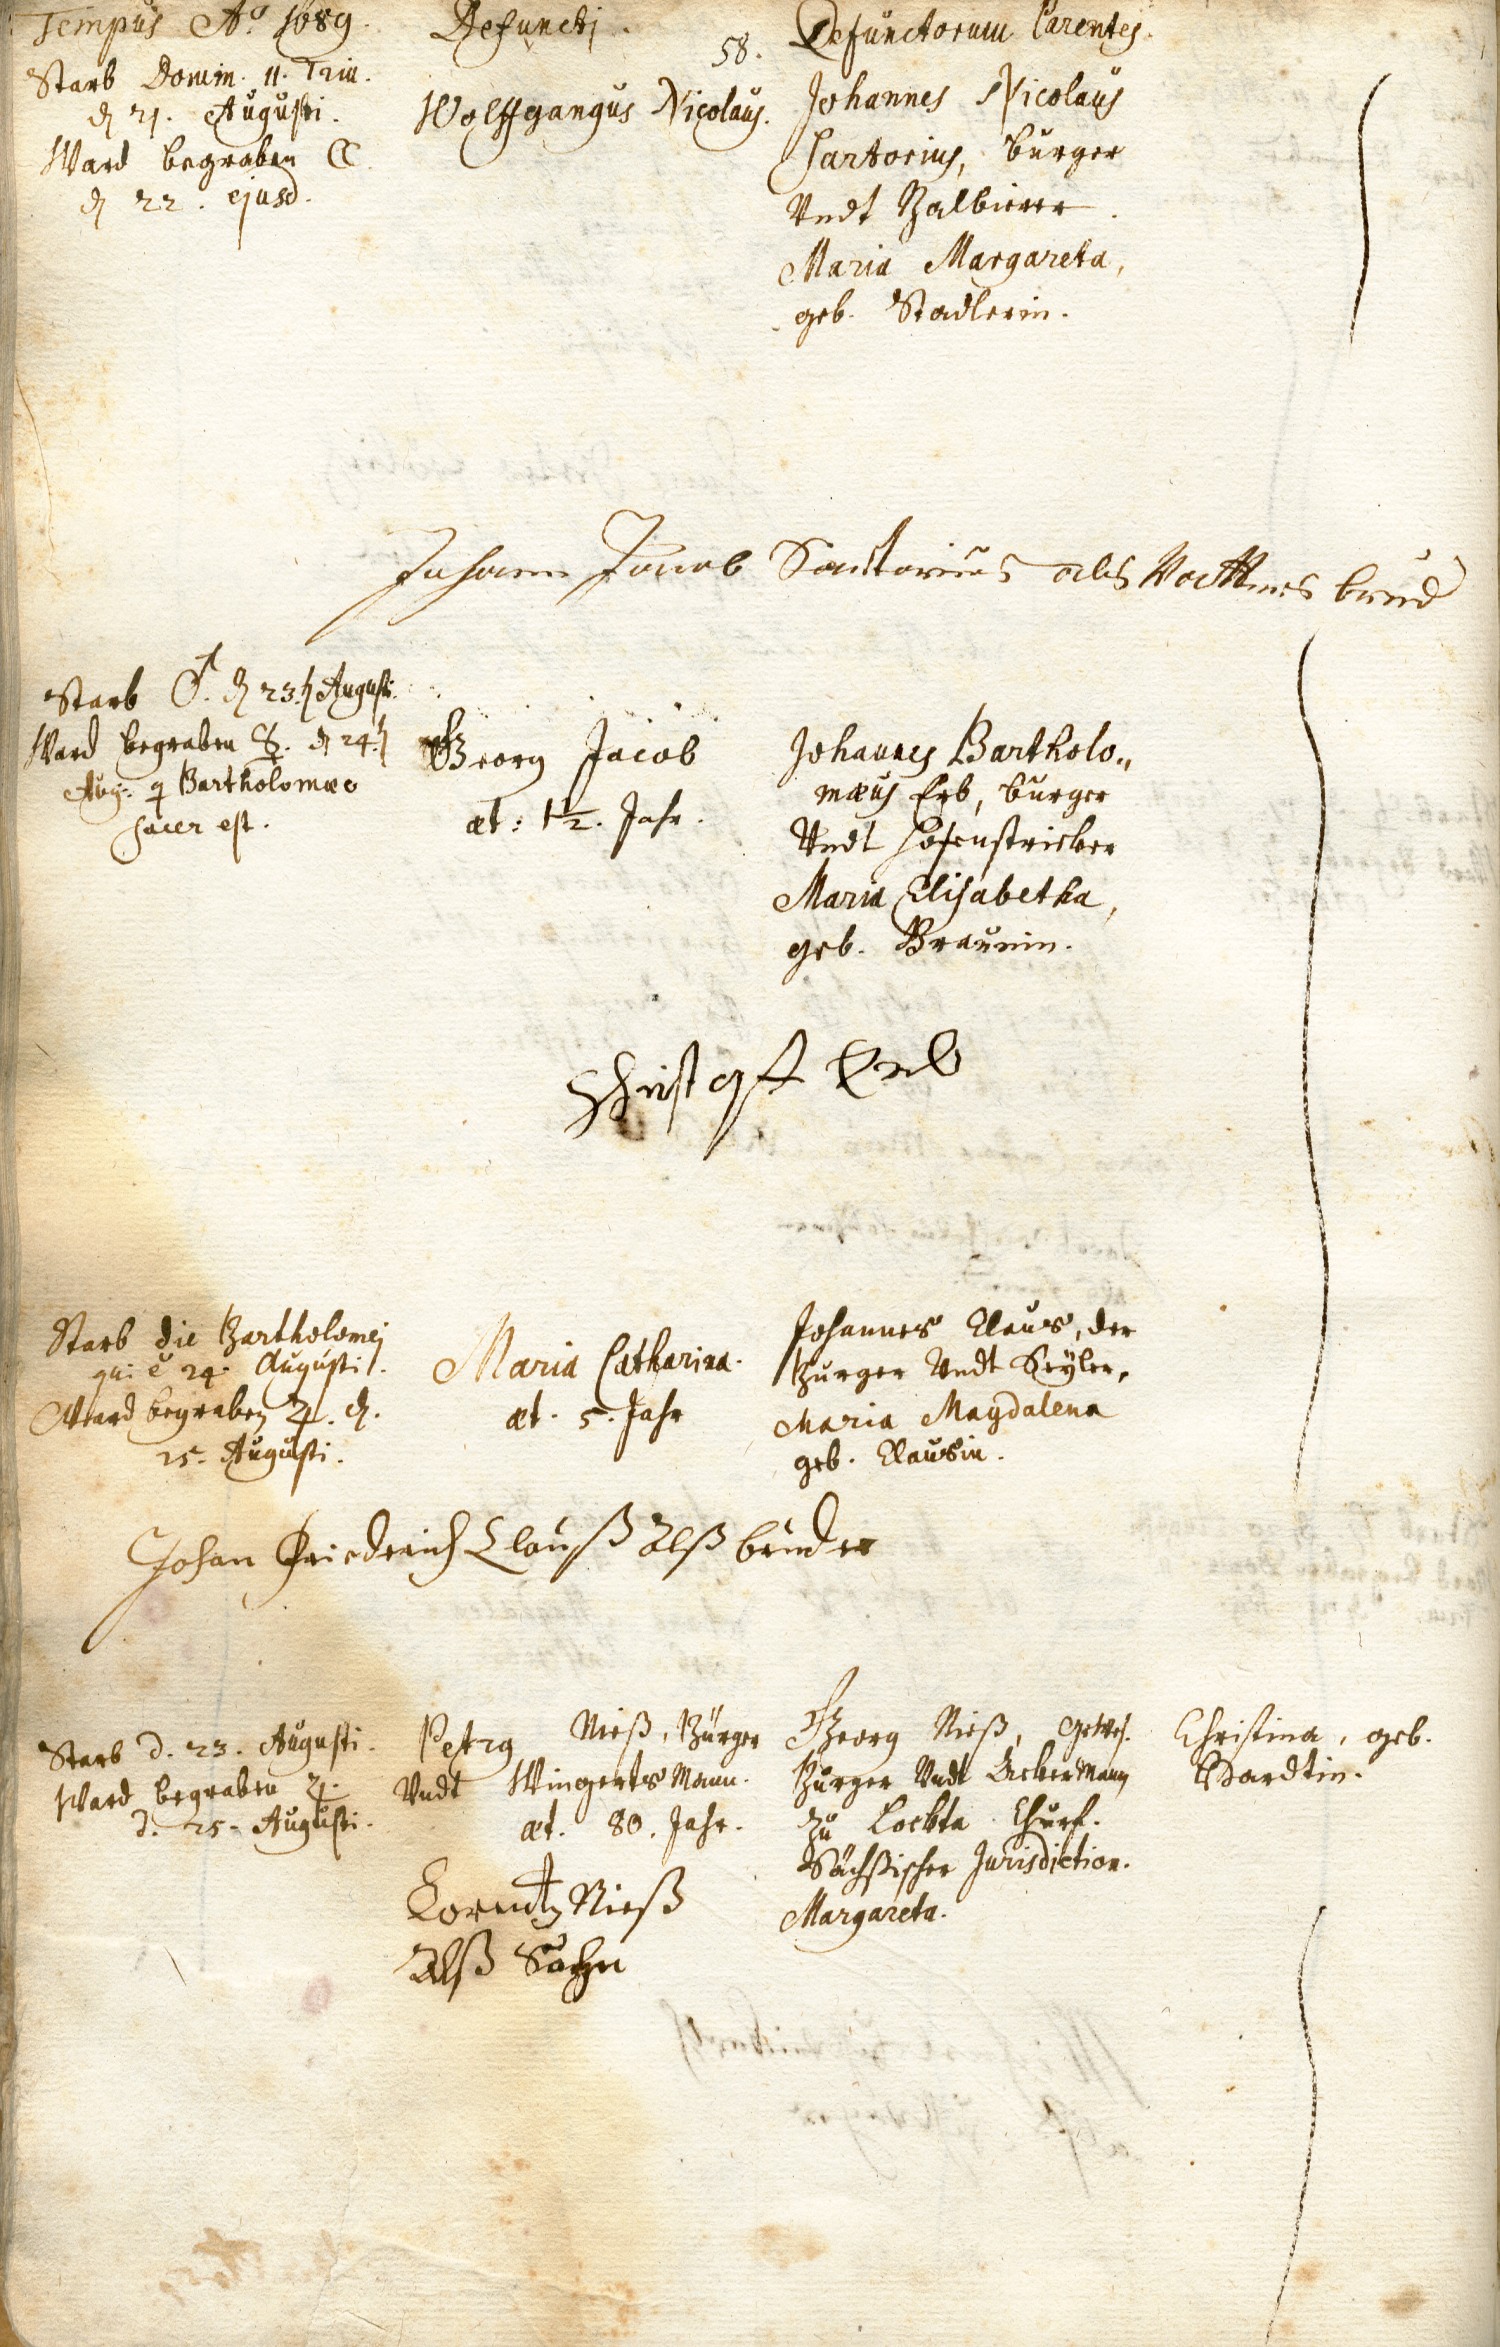 Tempus Aº 1689.
Defuncti.
58.
Defunctorum Parentes.
Starb Domin. 11. Trin.
d 21. Augusti.
Ward begraben ☾
d 22. ejusd.
Wolffgangus Nicolaus.
Johannes Nicolaus
Sartorius, burger
Undt Balbierer.
Maria Margareta,
geb. Stadlerin.
Johann Jacob Sartorius als Vatters brud
Starb ♂. d 23. Augusti.
Ward begraben ☿. d 24.
Aug: q Bartholomæo
sacer est.
Georg Jacob
æt: 1½. Jahr.
Johannes Bartholo„
mæus Erb, burger
Undt Hosenstricker
Maria Elisabetha,
geb. Braunin.
Christoff Erb
Starb die Bartholomej
qui e 24. Augusti.
Ward begraben ♃. d.
25. Augusti.
Maria Catharina.
æt. 5. Jahr
Johannes Claus, der
Burger Undt Seyler,
Maria Magdalena
geb. Clausin.
Johan Friederich Clauß Alß bruder
Starb d. 23. Augusti.
Ward begraben ♃.
d. 25. Augusti.
Petrg Nieß, Bürger
Undt Wingerts Mann.
æt. 80. Jahr.
Georg Nieß, Gewes.
Burger Undt Ackermann
Zu Lockta Churf.
Sächßischer Jurisdiction.
Margareta.
Christina, geb.
Bardtin.
Lorentz Nieß
Alß Sohn